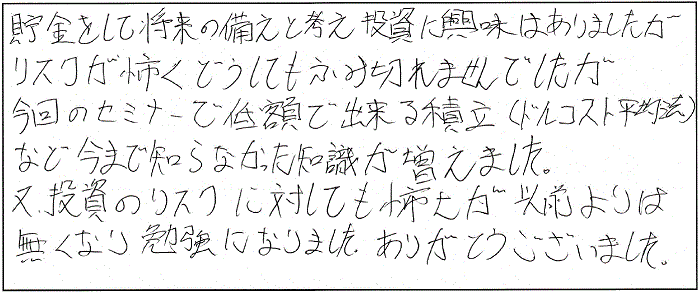 貯金をして将来の備えと考え投資に興味はありましたが
リスクが怖くどうしてもふみ切れませんでしたが
今回のセミナーで低額で出来る積立(ドルコスト平均法)
など今まで知らなかった知識が増えました。
又、投資のリスクに対しても怖さが以前よりは
無くなり勉強になりました。ありがとうございました。